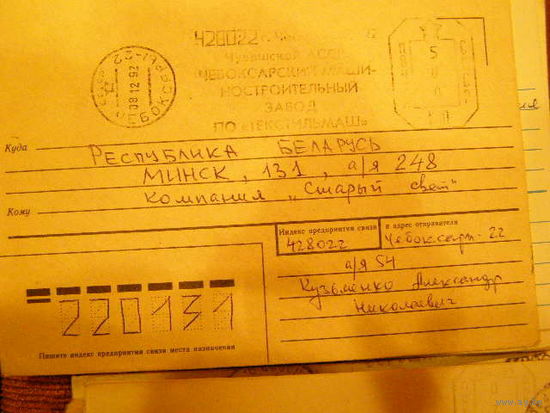 420022 г.
22
Чувашской АССР
ЧЕБОКСАРСКИЙ МАШИ-
НОСТРОИТЕЛЬНЫЙ
ЗАВОД
ПО «ТЕКСТИЛЬМАШ»
09 12 92
Куда
РЕСПУБЛИКА БЕЛАРУСЬ
МИНСК, 131, а/я 248
Компания „Старый свет"
Кому
Индекс предприятия связи
и адрес отправителя
428022
Чебоксары-22
а/я 54
Кузьменко Александр
Николаевич
220131
Пишите индекс предприятия связи места назначения